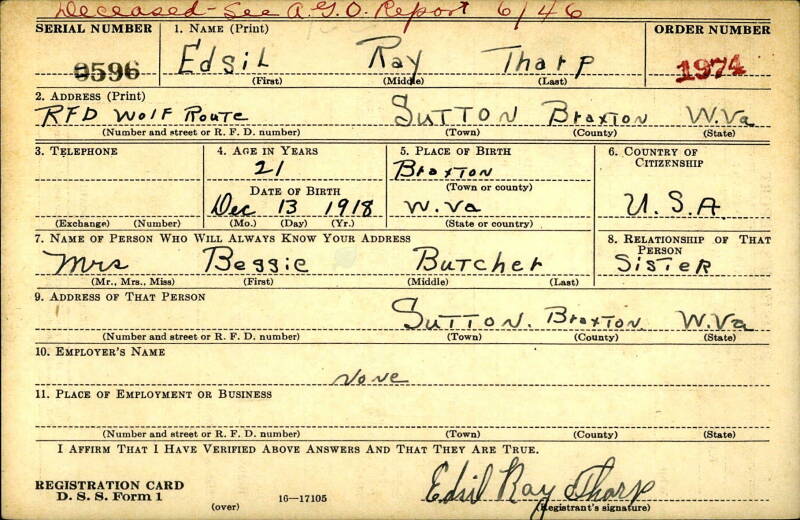 Deceased - See A.G.O. Report 6/46
SERIAL NUMBER 1. NAME (Print) ORDER NUMBER
9596 Edsil Ray Tharp 1974
(First) (Middle) (Last)
2. ADDRESS (Print)
RFD Wolf Route Sutton Braxton W.Va
(Number and street or R. F. D. number) (Town) (County) (State)
3. TELEPHONE 4. AGE IN YEARS 5. PLACE OF BIRTH 6. COUNTRY OF CITIZENSHIP
21 Braxton
(Town or county)
DATE OF BIRTH
Dec 13 1918 W.Va U.S.A.
(Exchange) (Number) (Mo.) (Day) (Yr.) (State or country)
7. NAME OF PERSON WHO WILL ALWAYS KNOW YOUR ADDRESS 8. RELATIONSHIP OF THAT PERSON
Mrs Bessie Butcher Sister
(Mr., Mrs., Miss) (First) (Middle) (Last)
9. ADDRESS OF THAT PERSON
Sutton. Braxton W.Va
(Number and street or R. F. D. number) (Town) (County) (State)
10. EMPLOYER'S NAME
None
11. PLACE OF EMPLOYMENT OR BUSINESS
(Number and street or R. F. D. number) (Town) (County) (State)
I AFFIRM THAT I HAVE VERIFIED ABOVE ANSWERS AND THAT THEY ARE TRUE.
REGISTRATION CARD
D. S. S. Form 1 16—17105 Edsil Ray Tharp
(over) (Registrant's signature)